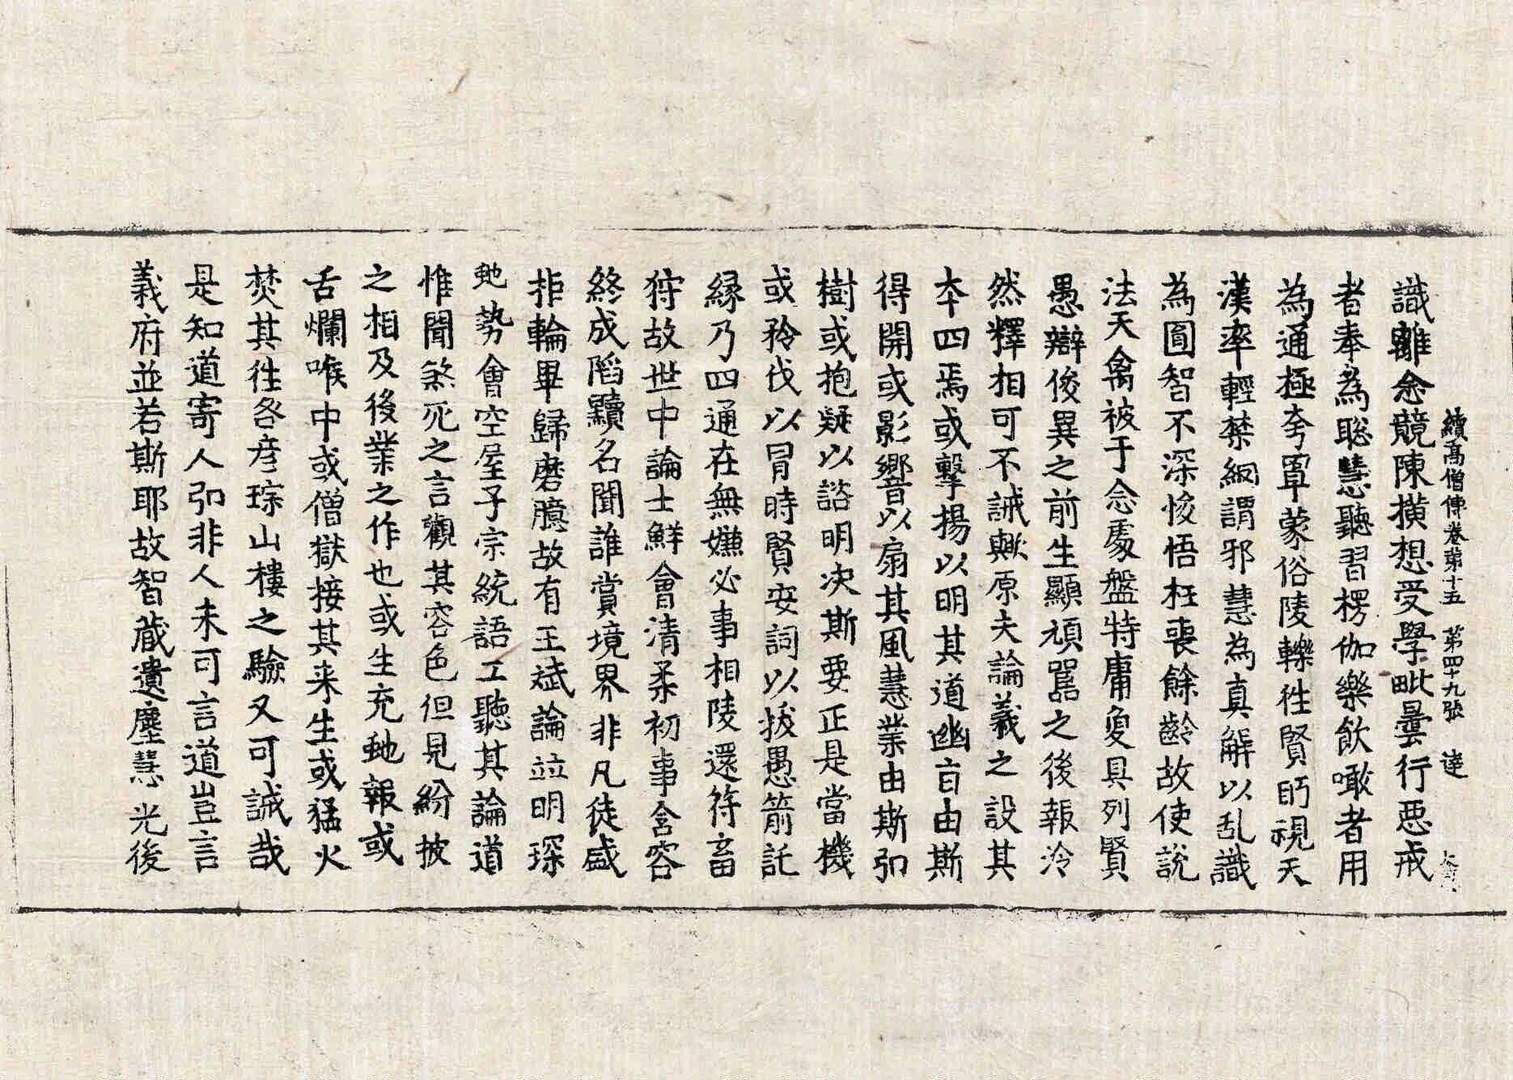 續高僧傳卷第十五 第四十九張 達
識雖念競陳橫想受學毗曇行惡戒
者奉為聡慧聽習楞伽樂飲噉者用
為通極夸罩蒙俗陵轢往賢眄視天
漢率輕禁網謂邪慧為真解以乱識
為圓智不深悛悟枉喪餘齡故使說
法天禽被于念處盤特庸叟具列賢
愚辯俊異之前生顯頑嚚之後報泠
然釋相可不誡歟原夫論義之設其
本四焉或擊揚以明其道幽旨由斯
得開或影響以扇其風慧業由斯弘
樹或抱疑以諮明决斯要正是當機
或矜伐以冒時賢安詞以拔愚箭託
縁乃四通在無嫌必事相陵還符畜
狩故世中論士鮮會清柔初事含容
終成䧟黷名聞誰賞境界非凡徒盛
拒輪畢歸磨臆故有王斌論竝明琛
虵勢會空屋子宗統語工聽其論道
惟聞煞死之言觀其容色但見紛披
之相及後業之作也或生充虵報或
舌爛喉中或僧獄接其来生或猛火
焚其往咎彦琮山樓之驗又可誡哉
是知道寄人弘非人未可言道豈言
義府並若斯耶故智蔵遺塵慧光後